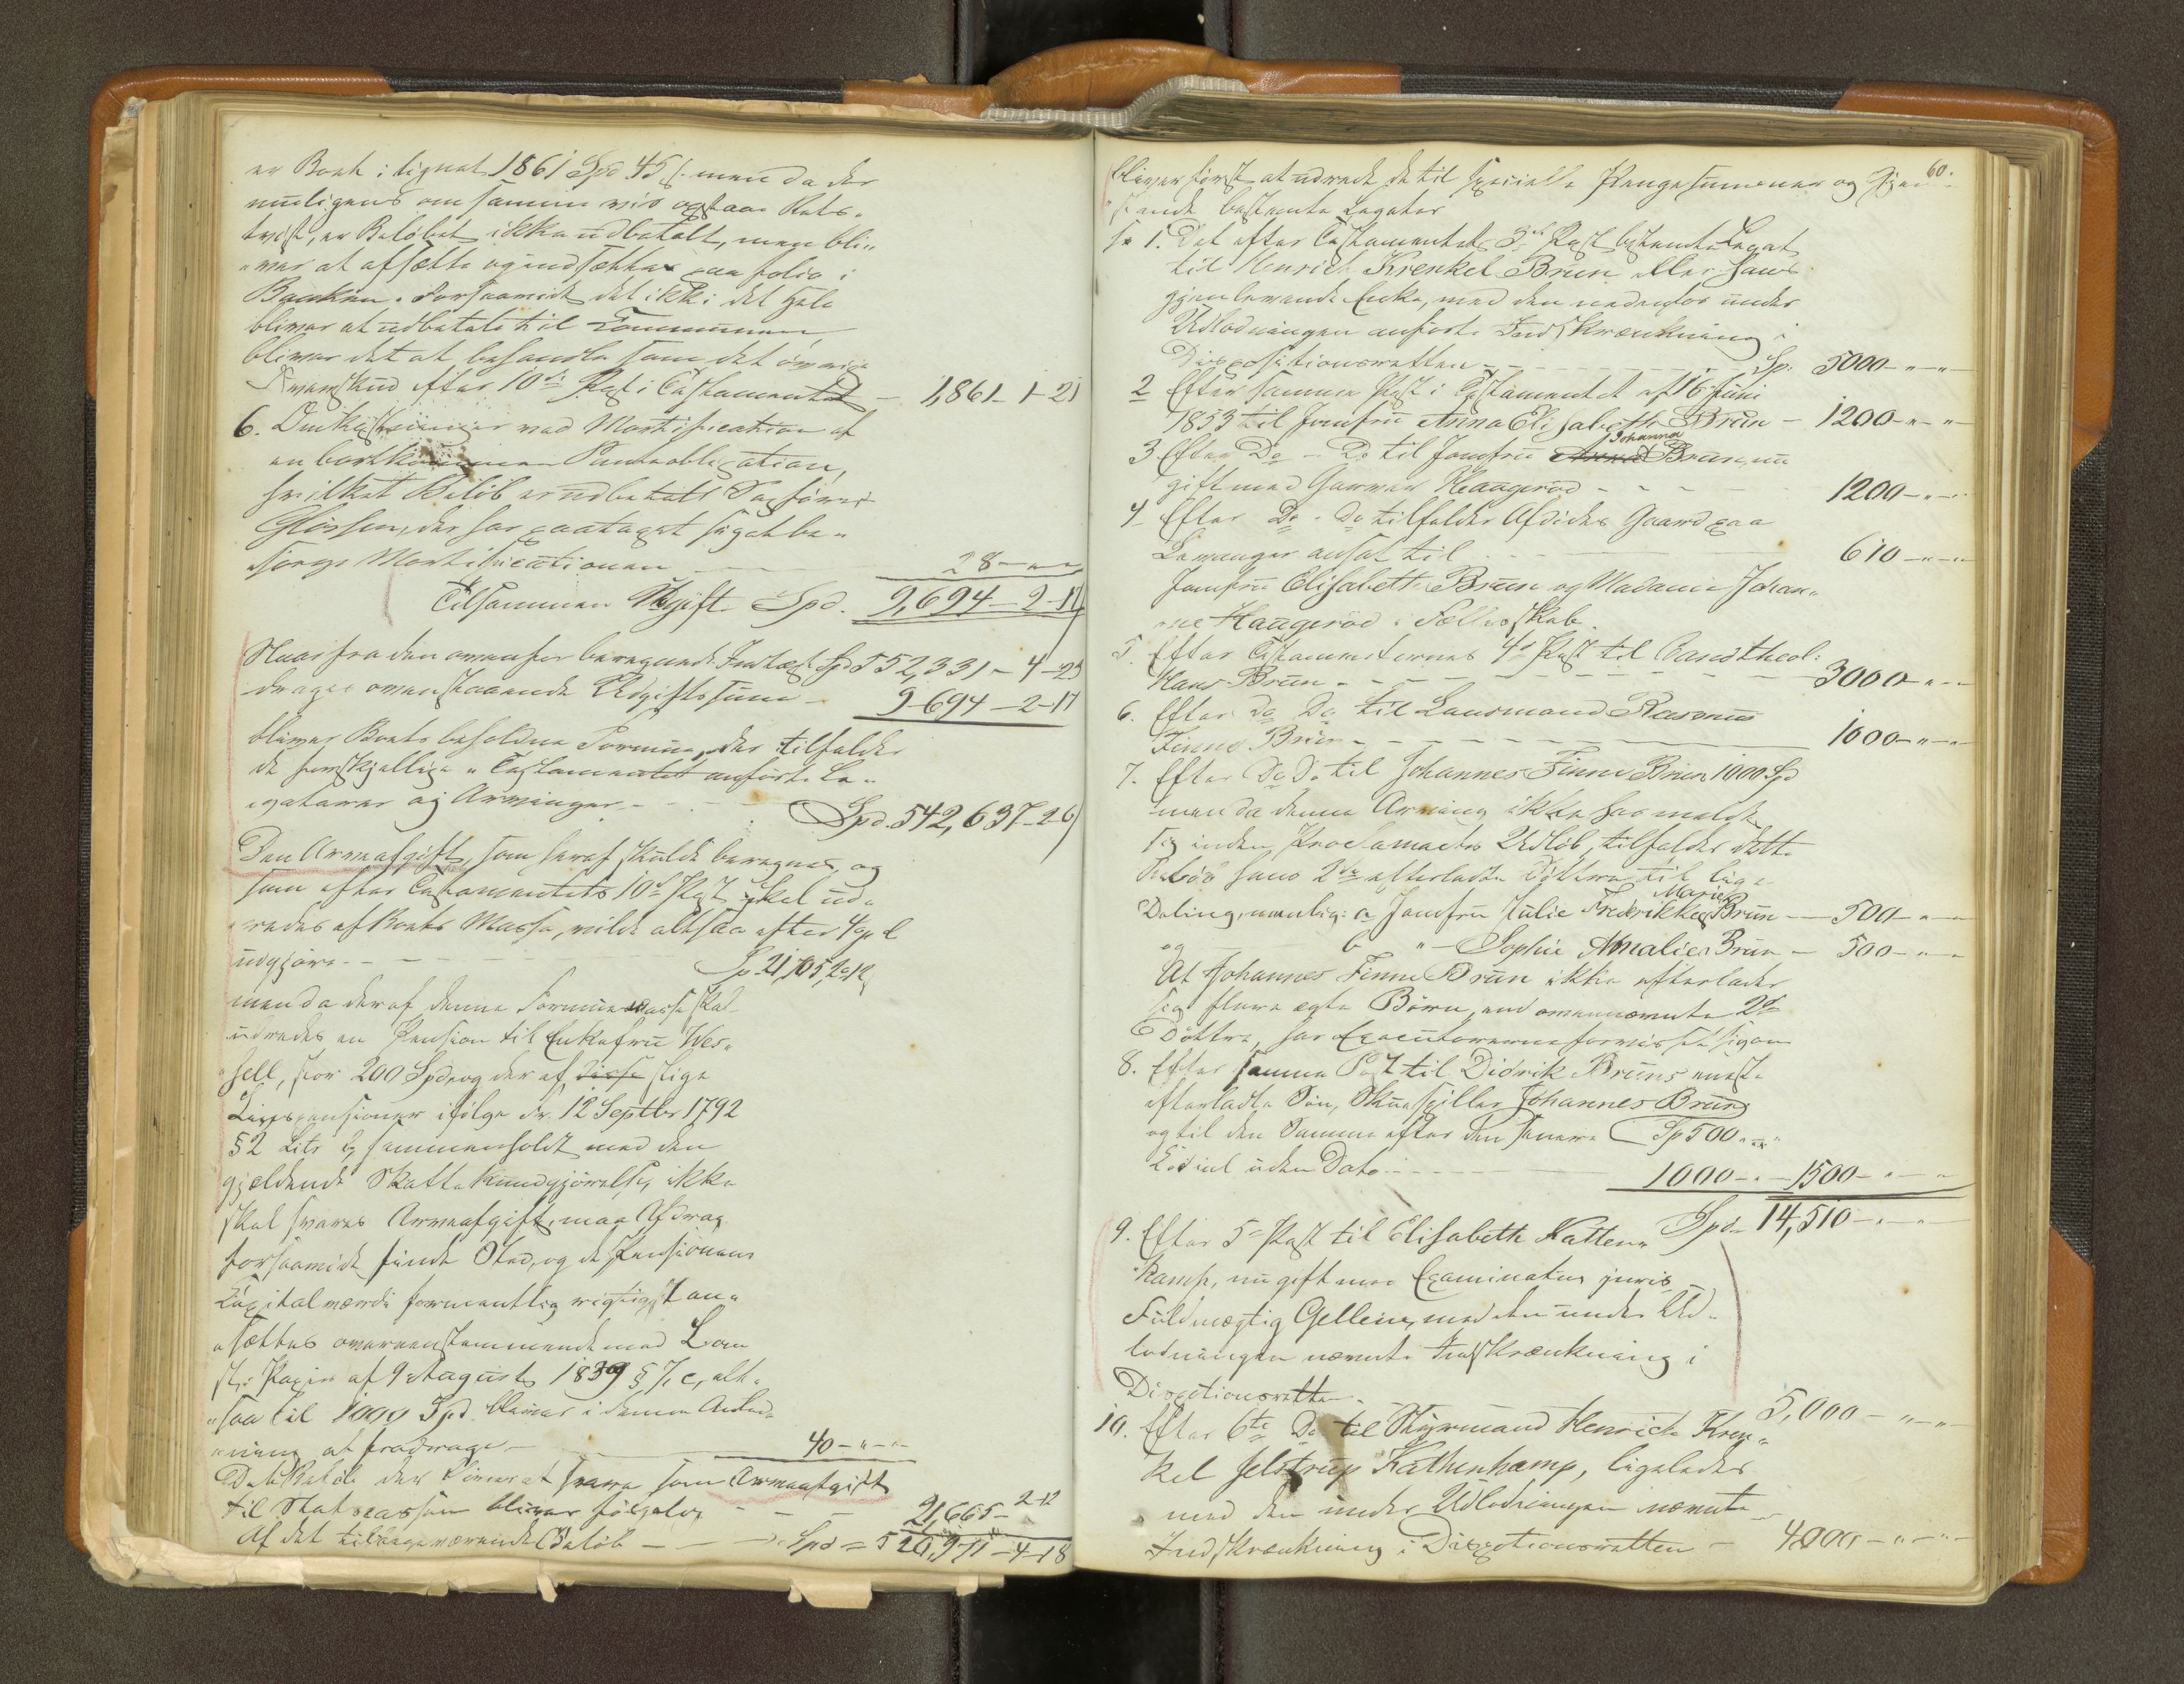 er Boet i lignet 1861 Spd 45 s. men da der
muligens om samme vis opstaar Rets-
tvist, er Beløbet ikke udbetalt, men bli-
ver at afsætte og indsættes paa folio i
Banken. Forsaavidt det ikke i det Hele
bliver at udbetale til Communen,
bliver det at behandle som det øvrige
efter 10de Post i Testamentet — 1,861-1-21
6. Omkostninger ved Mortification af
en bortkommen Panteobligation,
hvilket Beløb er udbetalt Sagfører
der har paataget sig at be-
sørge Mortificationen — 28-"-"
Tilsammen Udgift Spd. 9,694-2-17
Naar fra den ovenfor beregnede Indtægt Spd 552,331-4-23
drages ovenstaaende Udgiftssum — 9,694-2-17
bliver Boets beholdne Formue, der tilfalder
de forskjellige i Testamentet anførte Le-
gatarer og Arvinger - - - Spd. 542,637-2-6
Den Arveafgift, som heraf skulde beregnes og
som efter Testamentets 10de Post skal ud-
redes af Boets Masse, vilde altsaa efter 4 p Ct
udgjøre - - - Sp. 21,705,2-12
men da der af denne Formuemasse skal
udredes en Pension til Enkefru Wes-
sell, stor 200 Spd, og der af disse slige
Livspensioner ifølge Fr. 12 Septbr 1792
§ 2 Litr b, sammenholdt med den
gjældende Skattekundgjørelse, ikke
skal svares Arveafgift, maa Afdrag
forsaavidt finde Sted, og da Pensionens
Capitalværdi formentlig rigtigst an-
sættes overensstemmende med Lov
st. Papir af 9 August 1839 § 7, c, alt-
saa til 1000 Spd. bliver i denne Anled-
ning at fradrage — 40-"-"
Det Beløb der bliver at svare som Arveafgift
til Statscassen bliver følgelig — 21,665-2-12
Af det tilbageværende Beløb — Spd = 520,971-4-18
60.
bliver først at udrede de til specielle Pengesummer og Gjen-
stande bestemte Legater
1. Det efter Testamentets 3de Post bestemte Legat
til Henrich Krenkel Brun eller hans
gjenlevende Enke, med den nedenfor under
Udlodningen anførte Indskrænkning i
Dispositionsretten — Sp. 5000-"-"
2 Efter samme Post i Testamentet af 16 Juni
1853 til Jomfru Anna Elisabeth Brun — 1200-"-"
3 Efter Do - Do til Jomfru Anna Johanna Brun, nu
gift med Haugerød - - - 1200-"-"
4 Efter Do - Do tilfalder Afdødes Gaard paa
Levanger ansat til — 610-"-"
Jomfru Elisabeth Brun og Madame Johan-
ne Haugerød i Fællesskab.
5. Efter Testamenternes 4de Post til Cand theol:
Hans Brun - - - 3000-"-"
6. Efter Do Do til Lensmand Rasmus
Finne Brun - - - 1000-"-"
7. Efter Do Do til Johannes Finne Brun 1000 Spd
men da denne Arving ikke har meldt
sig inden Proclamaets Udløb, tilfalder dette
Beløb hans 2de efterladte Døttre til lige
Deling, nemlig: a Jomfru Julie Frederikke Marie Brun — 500-"-"
og b "- Sophie Amalie Brun — 500-"-"
At Johannes Finne Brun ikke efterlader
sig flere ægte Børn, end ovennævnte 2de
Døttre, har Executorerne forvisset sig om
8. Efter samme Post til Didrik Bruns eneste
efterladte Søn, Skuespiller Johannes Brun
og til den Samme efter den senere Sp 500-"-"
Codicil uden Dato - - - 1000-"- 1500-"-"
Spd. 14,510-"-"
9. Efter 5te Post til Elisabeth Katten-
kamp, nu gift med Examinatus juris
Fuldmægtig Gellein, med den under Ud-
lodningen nævnte Indskrænkning i
Dispositionsretten - 5,000-"-"
10. Efter 6te Do til Styrmand Henrich Kren-
kel Jelstrup Kathenkamp, ligeledes
med den under Udlodningen nævnte
Indskrænkning i Dispositionsretten — 4000-"-"